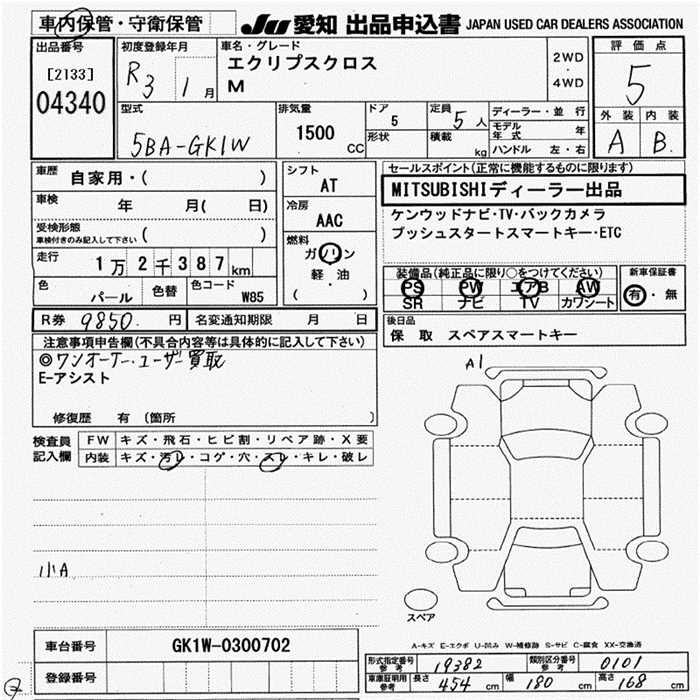 車内保管・守衛保管 JU 愛知 出品申込書 JAPAN USED CAR DEALERS ASSOCIATION
出品番号 初度登録年月 車名・グレード 評価点
[2133] R3 1月 エクリプスクロス 2WD・4WD 5
04340 M
外装 内装
A B
型式 排気量 ドア 定員 ディーラー・並行
5BA-GK1W 1500CC 5 5人 モデル年式 年
形状 積載 kg ハンドル 左・右
車歴 自家用・( ) シフト AT
セールスポイント(正常に機能するものに限ります)
MITSUBISHIディーラー出品
車検 年 月( 日) 冷房 AAC
ケンウッドナビ・TV・バックカメラ
プッシュスタートスマートキー・ETC
受検形態 ( )
車検付きのみ記入して下さい
燃料 ガソリン
軽・油
( )
走行 1万2千387km
装備品(純正品に限り○をつけてください) 新車保証書
PS PW エアB AW 有・無
SR ナビ TV カワシート
色 パール 色替 色コード W85
R券 9850.円 名変通知期限 月 日
後日品
保 取 スペアスマートキー
注意事項申告欄(不具合内容等は具体的に記入して下さい)
◎ワンオーナー・ユーザー買取
E-アシスト
修復歴 有 (箇所 )
A1
検査員記入欄 FW キズ・飛石・ヒビ割・リペア跡・X要
内装 キズ・汚レ・コゲ・穴・スレ・キレ・破レ
小A
スペア
車台番号 GK1W-0300702
登録番号
A-キズ E-エクボ U-凹み W-補修跡 S-サビ C-腐食 XX-交換済
形式指定番号参考 19382 類別区分番号参考 0101
車庫証明用参考 長さ 454cm 幅 180cm 高さ 168cm